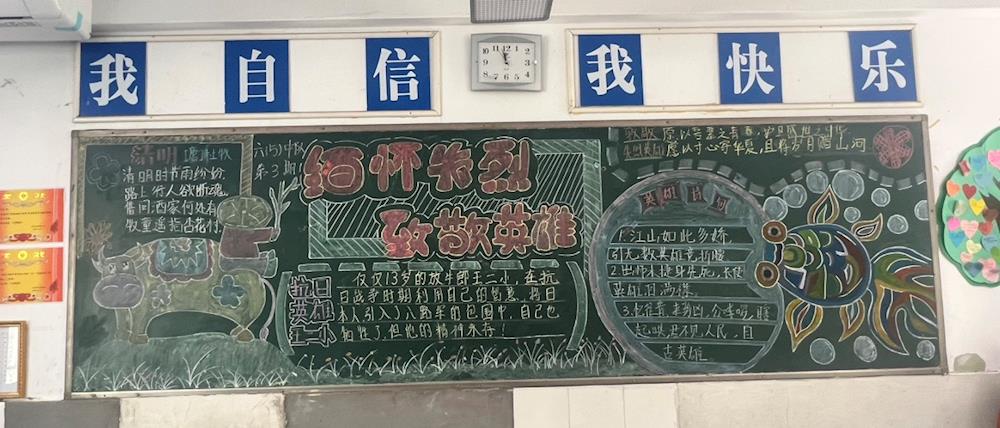 我自信
我快乐
清明 [唐]杜牧
清明时节雨纷纷,
路上行人欲断魂。
借问酒家何处有
牧童遥指杏花村。
六(5)中队
第3期
缅怀先烈
致敬英雄
抗日
英雄
王二小
仅仅13岁的放牛郎王二小,在抗
日战争时期利用自己的智慧,将日
本人引入了八路军的包围中,自己也
牺牲了,但他的精神永存!
致敬
愿以寸心寄华夏,且将岁月赠山河
英雄诗句
1.江山如此多娇,
引无数英雄竞折腰
2.出师未捷身先死,长使
英雄泪满襟
3.
英雄